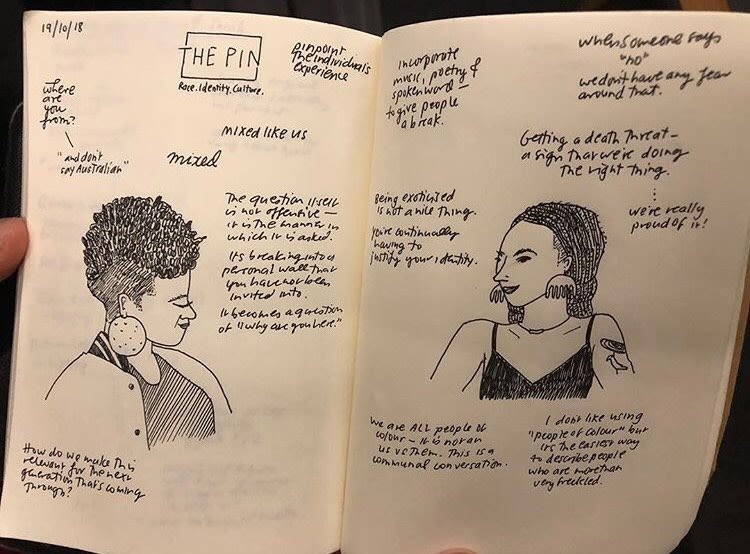 19/10/18
THE PIN
Race. Identity. Culture.
pinpoint
the individual's
experience
where
are
you
from?
"and don't
say Australian"
mixed like us
mixed
The question itself
is not offensive —
it is the manner in
which it is asked.
Its breaking into a
personal wall that
you have not been
invited into.
It becomes a question
of "why are you here."
How do we make this
relevant for the next
generation that's coming
through?
Incorporate
music, poetry &
spoken word —
to give people
a break.
when someone says
"no"
we don't have any fear
around that.
Getting a death threat —
a sign that we're doing
the right thing.
we're really
proud of it!
Being exoticised
is not a nice thing.
you're continually
having to
justify your identity.
We are ALL people of
colour — it is not an
us vs them. This is a
communal conversation.
I don't like using
"people of colour" but
its the easiest way
to describe people
who are more than
very freckled.